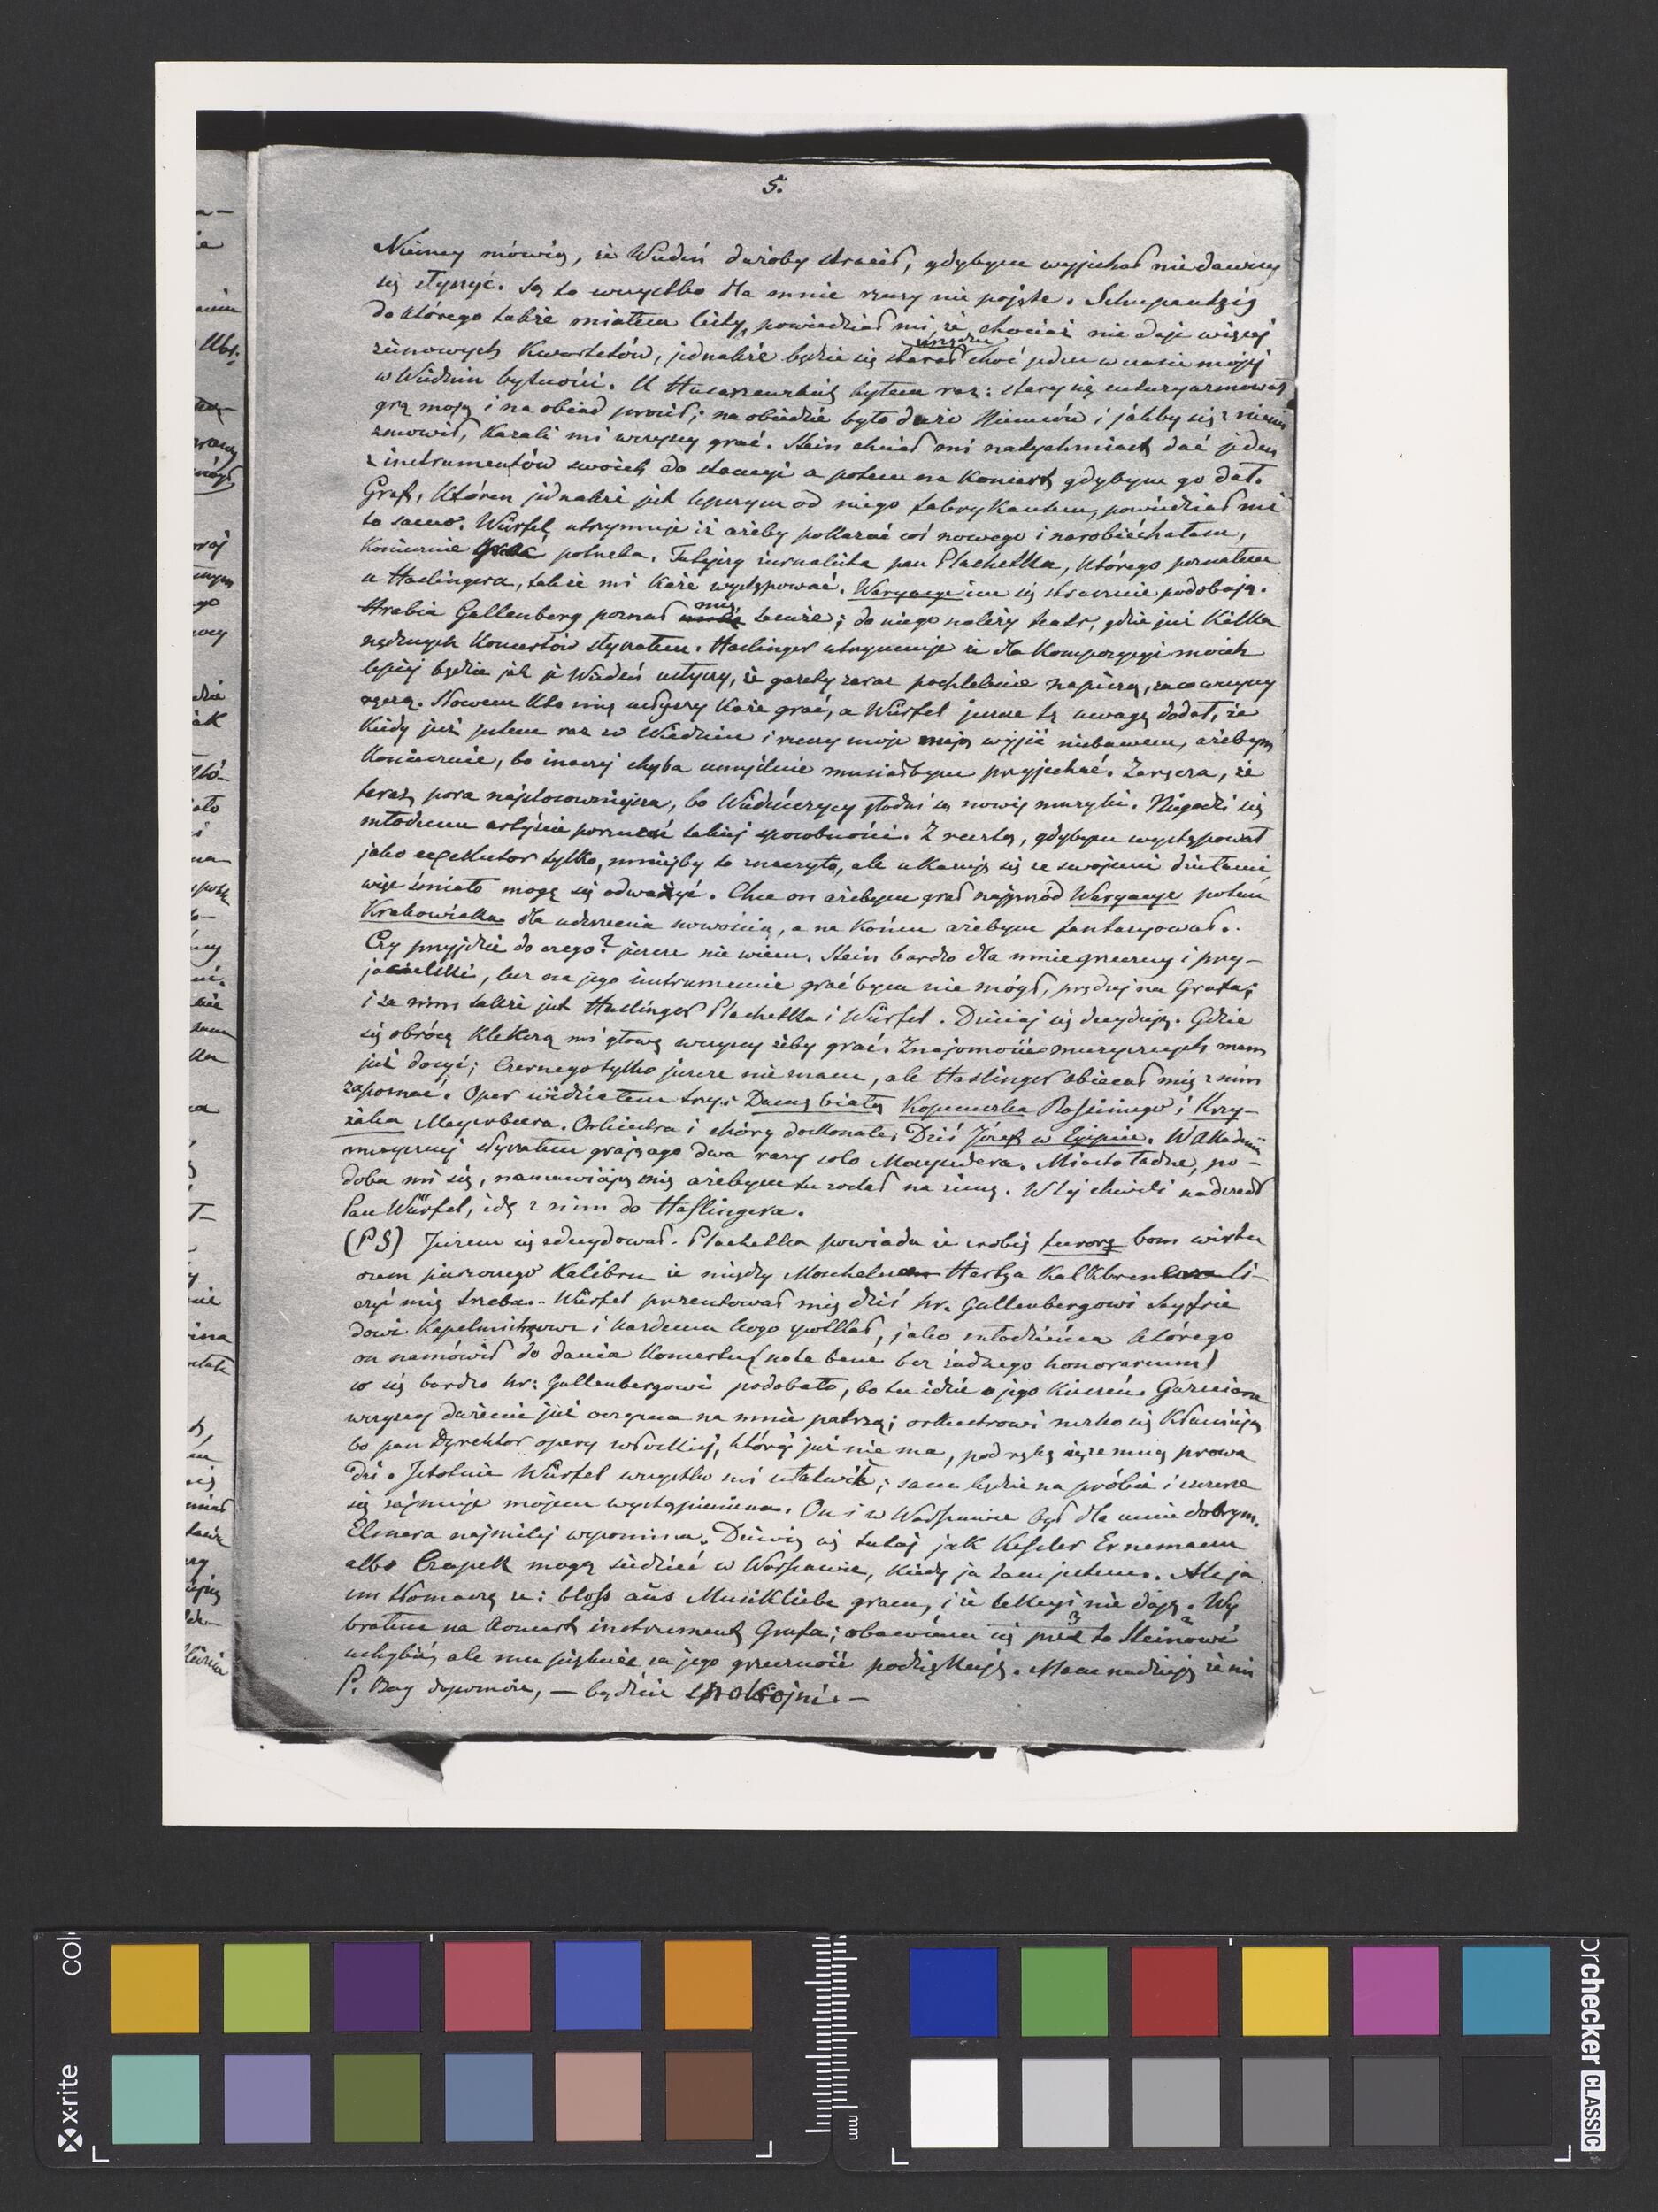 5.
Niemcy mówią, że Wiedeń dużoby stracił, gdybym wyjechał nie dawszy
się słyszyć. Są to wszystko dla mnie rzeczy nie pojęte. Schupantzig
do którego także miałem listy, powiedział mi, że, chociaż nie daje więcej
zimowych Kwartetów, jednakże będzie się starał urządzić choć jeden w czasie mojej
w Wiedniu bytności. U Husarzewskich byłem raz: stary się entuzyazmował
grą moją i na obiad prosił; na obiedzie było dużo Niemców i jakby się z niemi
zmówił, Kazali mi wszyscy grać. Stein chciał mi natychmiast dać jeden
z instrumentów swoich do stancyi a potem na Koncert gdybym go dał.
Graf, Któren jednakże jest lepszym od niego fabrykantem, powiedział mi
to samo. Würfel utrzymuje iż ażeby pokazać coś nowego i narobić hałasu,
Koniecznie grać potrzeba. Tutejszy żurnalista pan Blachetka, Którego poznałem
u Haslingera, także mi Każe występować. Waryacye im się strasznie podobają.
Hrabia Gallenberg poznał mię także; do niego należy teatr, gdzie już Kilka
nędznych Koncertów słyszałem. Haslinger utrzymuje że dla Kompozycyi moich
lepiej będzie jak je Wiedeń usłyszy, że gazety zaraz pochlebnie napiszą, za co wszyscy
ręczą. Słowem Kto mię usłyszy Każe grać, a Würfel jeszcze tę uwagę dodał, że
Kiedy już jestem raz w Wiedniu i rzeczy moje mają wyjść niebawem, ażebym
Koniecznie, bo inaczej chyba umyślnie musiałbym przyjechać. Zaręcza, że
teraz pora najstosowniejsza, bo Wiedeńczycy głodni są nowej muzyki. Niegodzi się
młodemu artyście porzucać takiej sposobności. Z resztą, gdybym występował
jako egzekutor tylko, mniejby to znaczyło, ale ukazuję się ze swojemi dziełami,
więc śmiało mogę się odważyć. Chce on ażebym grał najprzód Waryacye potem
Krakowiaka dla uderzenia nowością, a na Końcu ażebym fantazyował.
Czy przyjdzie do czego? jeszcze nie wiem. Stein bardzo dla mnie grzeczny i przy-
jacielski, lecz na jego instrumencie grać bym nie mógł, prędzej na Grafa;
i za nim także jest Haslinger Blachetka i Würfel. Dzisiaj się decyduję. Gdzie
się obrócę Klekczą mi głowę wszyscy żeby grać. Znajomości muzycznych mam
już dosyć; Czernego tylko jeszcze nie znam, ale Haslinger obiecał mię z nim
zapoznać. Oper widziałem trzy: Damę białą Kopciuszka Rossiniego i Krzy-
żaka Meyerbeera. Orkiestra i chóry doskonałe; Dziś Józef w Egipcie. W Akademii
muzycznej słyszałem grającego dwa razy solo Mayjsedera. Miasto ładne, po-
doba mi się, namawiają mię ażebym tu został na zimę. W tej chwili nadszedł
Pan Würfel, idę z nim do Haslingera.
(PS) Jużem się zdecydował. Blachetka powiada że zrobię furorę bom wirtu
ozem pierwszego Kalibru że między Moschelesem Hertza Kalkbrenera li-
czyć mię trzeba. - Würfel prezentował mię dziś hr. Gallenbergowi Seyfrie
dowi Kapelmistrzowi i każdemu kogo spotkał, jako młodzieńca którego
on namówił do dania Koncertu (nota bene bez żadnego honorarium)
co się bardzo hr: Gallenbergowi podobało, bo tu idzie o jego Kieszeń. Gazeciarze
wszyscy dużemi już oczyma na mnie patrzą; orkiestrowi nizko się Kłaniają
bo pan Dyrektor opery włoskiej, której już nie ma, pod rękę się ze mną prowa
dzi. Istotnie Würfel wszystko mi ułatwił; sam będzie na próbie i szczerze
się zajmuje mojem wystąpieniem. On i w Warszawie był dla mnie dobrym.
Elsnera najmilej wspomina. Dziwią się tutaj jak Kessler Ernemann
albo Czapek mogą siedzieć w Warszawie, Kiedy ja tam jestem. Ale ja
im tłomaczę że: bloss aus Musikliebe gram, i że lekcyi nie daję. Wy
brałem na koncert instrument Grafa; obawiam się przez to Steinowi
uchybić, ale mu pięknie za jego grzeczność podziękuję. Mam nadzieję że mi
P. Bóg dopomoże, — bądźcie spokojni. —